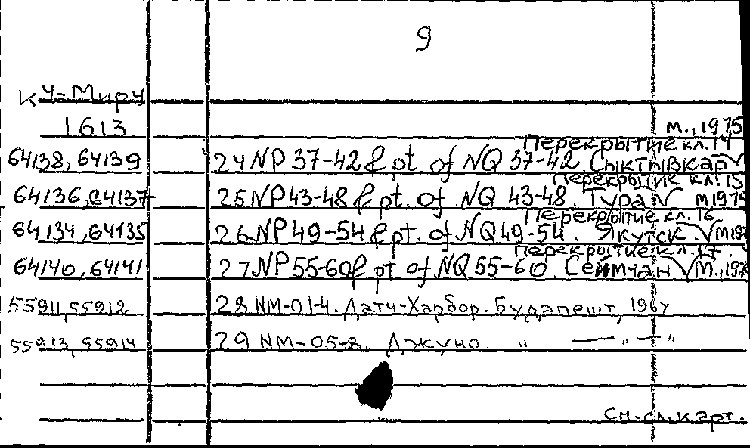 9
КУ-Миру
1613
М., 1975
Перекрытие кл. 14
64138, 64139 24 NP 37-42 & pt. of NQ 37-42 Сыктывкар √
Перекрытие кл. 15
64136, 64137 25 NP 43-48 & pt. of NQ 43-48. Тура √ М 1975
Перекрытие кл. 16
64134, 64135 26 NP 49-54 & pt. of NQ 49-54. Якутск. √
Перекрытие кл. 17
64140, 64141 27 NP 55-60 & pt of NQ 55-60. Сеймчан √ М.,
55911, 55912 28 NM-01-4. Датч-Харбор. Будапешт, 1967
55913, 55914 29 NM-05-8. Джуно. " — " —
См. сл. карт.